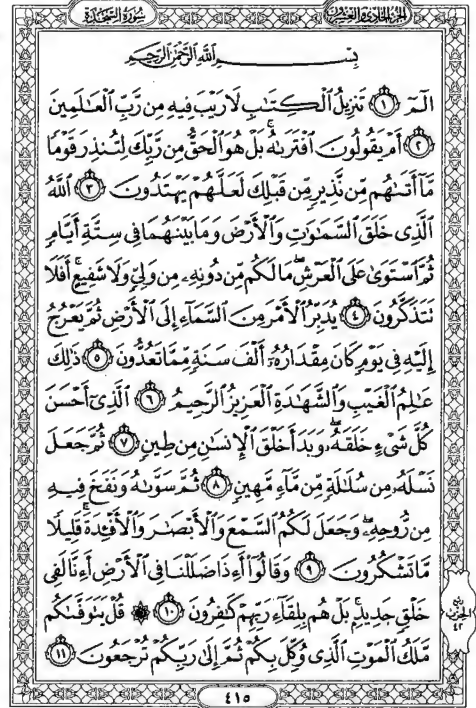 الجزء الحادي والعشرون
سُورَةُ السَّجْدَةِ
بِسْمِ اللَّهِ الرَّحْمَٰنِ الرَّحِيمِ
الٓمٓ ﴿١﴾ تَنزِيلُ ٱلْكِتَٰبِ لَا رَيْبَ فِيهِ مِن رَّبِّ ٱلْعَٰلَمِينَ
﴿٢﴾ أَمْ يَقُولُونَ ٱفْتَرَىٰهُ ۚ بَلْ هُوَ ٱلْحَقُّ مِن رَّبِّكَ لِتُنذِرَ قَوْمًا
مَّآ أَتَىٰهُم مِّن نَّذِيرٍ مِّن قَبْلِكَ لَعَلَّهُمْ يَهْتَدُونَ ﴿٣﴾ ٱللَّهُ
ٱلَّذِى خَلَقَ ٱلسَّمَٰوَٰتِ وَٱلْأَرْضَ وَمَا بَيْنَهُمَا فِى سِتَّةِ أَيَّامٍ
ثُمَّ ٱسْتَوَىٰ عَلَى ٱلْعَرْشِ ۖ مَا لَكُم مِّن دُونِهِۦ مِن وَلِىٍّ وَلَا شَفِيعٍ ۚ أَفَلَا
تَتَذَكَّرُونَ ﴿٤﴾ يُدَبِّرُ ٱلْأَمْرَ مِنَ ٱلسَّمَآءِ إِلَى ٱلْأَرْضِ ثُمَّ يَعْرُجُ
إِلَيْهِ فِى يَوْمٍ كَانَ مِقْدَارُهُۥٓ أَلْفَ سَنَةٍ مِّمَّا تَعُدُّونَ ﴿٥﴾ ذَٰلِكَ
عَٰلِمُ ٱلْغَيْبِ وَٱلشَّهَٰدَةِ ٱلْعَزِيزُ ٱلرَّحِيمُ ﴿٦﴾ ٱلَّذِىٓ أَحْسَنَ
كُلَّ شَىْءٍ خَلَقَهُۥ ۖ وَبَدَأَ خَلْقَ ٱلْإِنسَٰنِ مِن طِينٍ ﴿٧﴾ ثُمَّ جَعَلَ
نَسْلَهُۥ مِن سُلَٰلَةٍ مِّن مَّآءٍ مَّهِينٍ ﴿٨﴾ ثُمَّ سَوَّىٰهُ وَنَفَخَ فِيهِ
مِن رُّوحِهِۦ ۖ وَجَعَلَ لَكُمُ ٱلسَّمْعَ وَٱلْأَبْصَٰرَ وَٱلْأَفْـِٔدَةَ ۚ قَلِيلًا
مَّا تَشْكُرُونَ ﴿٩﴾ وَقَالُوٓا۟ أَءِذَا ضَلَلْنَا فِى ٱلْأَرْضِ أَءِنَّا لَفِى
خَلْقٍ جَدِيدٍۭ ۚ بَلْ هُم بِلِقَآءِ رَبِّهِمْ كَٰفِرُونَ ﴿١٠﴾ ۞ قُلْ يَتَوَفَّىٰكُم
مَّلَكُ ٱلْمَوْتِ ٱلَّذِى وُكِّلَ بِكُمْ ثُمَّ إِلَىٰ رَبِّكُمْ تُرْجَعُونَ ﴿١١﴾
ربع
الحزب
٤٢
٤١٥